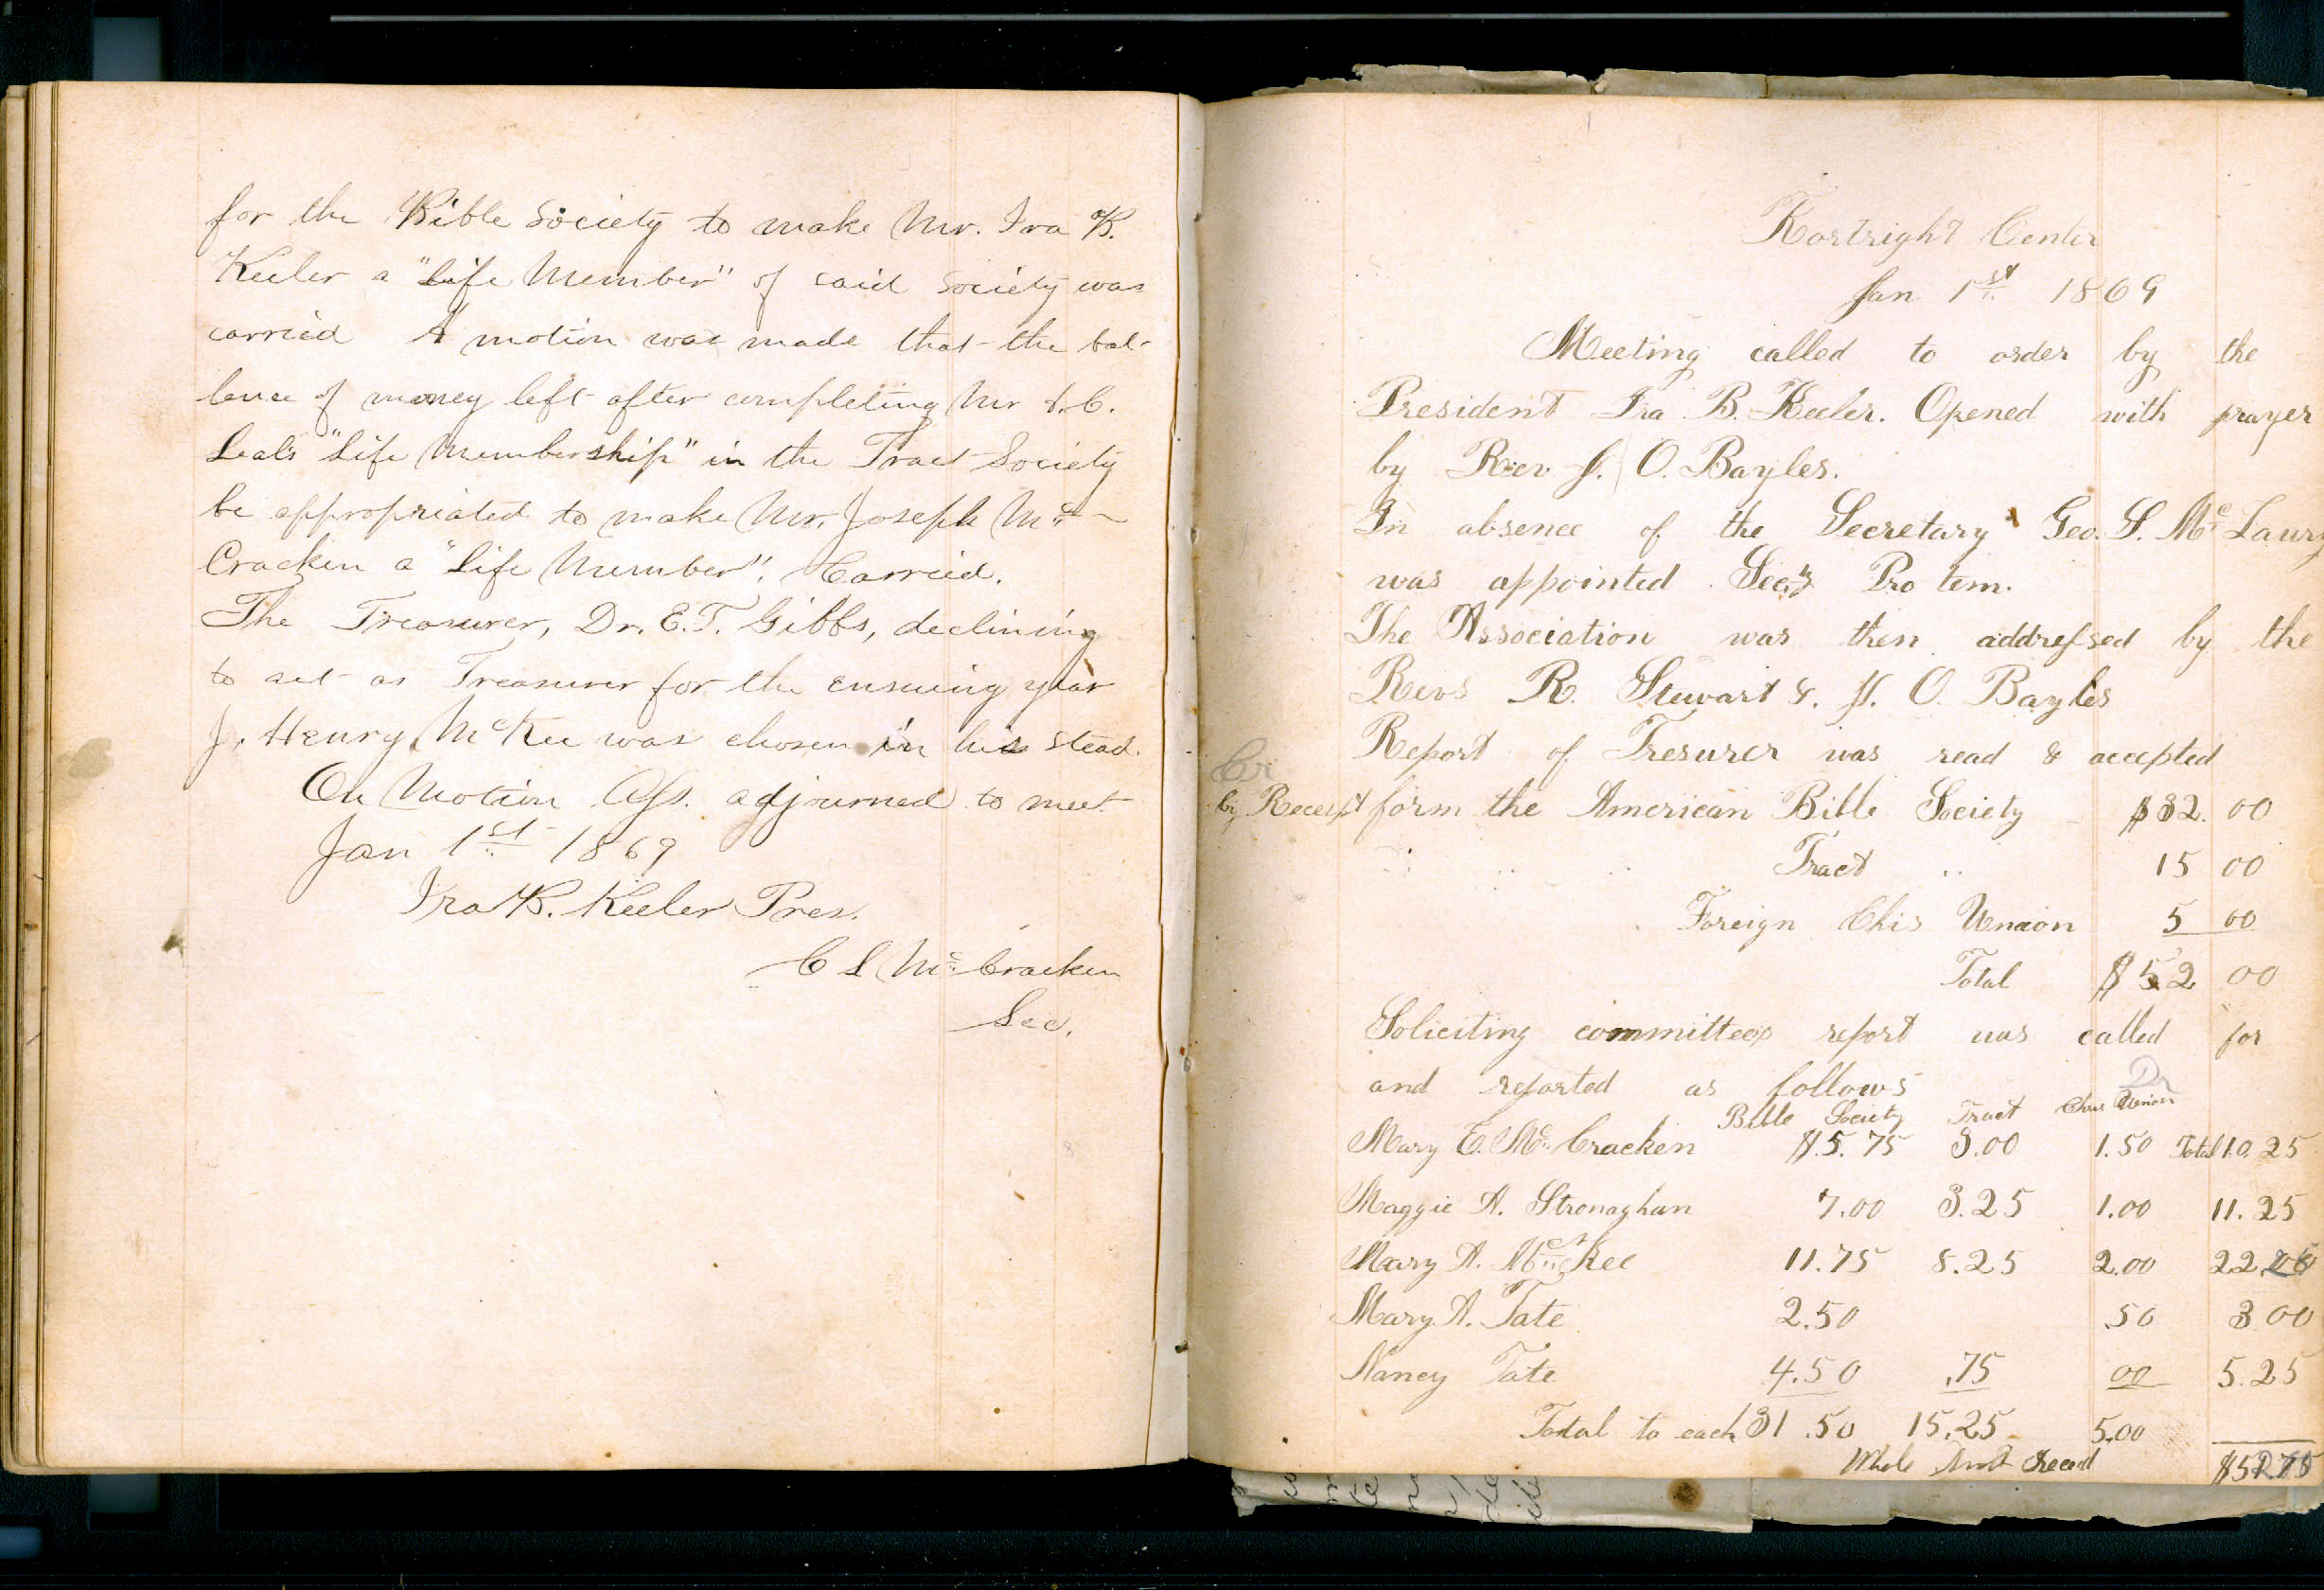 for the Bible Society to make Mr. Ira B.
Keeler a "Life Member" of said Society was
carried A motion was made that the bal-
lance of money left after completing Mr A. C.
Leal's "Life Membership" in the Tract Society
be appropriated to make Mr. Joseph Mc-
Cracken a "Life Member". Carried.
The Treasurer, Dr. E. T. Gibbs, declining
to act as Treasurer for the ensuing year
J. Henry McKee was chosen in his stead.
On Motion Ass. adjourned to meet
Jan 1st 1869
Ira B. Keeler Pres.
C L McCracken
Sec.
Kortright Center
Jan 1st 1869
Meeting called to order by the
President Ira B. Keeler. Opened with prayer
by Rev J. O. Bayles.
In absence of the Secretary Geo. S. McLaury
was appointed Secy Pro tem.
The Association was then addressed by the
Revs R. Stewart & J. O. Bayles
Report of Tresurer was read & accepted
Cr
by Receipt form the American Bible Society $32.00
" " " Tract " 15 00
Foreign Chis Unaion 5 00
Total $52 00
Soliciting committees report was called for
and reported as follows
Dr
Bible Society Tract Chris Union
Mary E. McCracken $5.75 3.00 1.50 Total 10.25
Maggie A. Stronaghan 7.00 3.25 1.00 11.25
Mary A. McKee 11.75 8.25 2.00 22.00
Mary A. Tate 2.50 .50 3 00
Nancy Tate 4.50 .75 00 5.25
Total to each 31.50 15.25 5.00
Whole Amt Reced $51.75